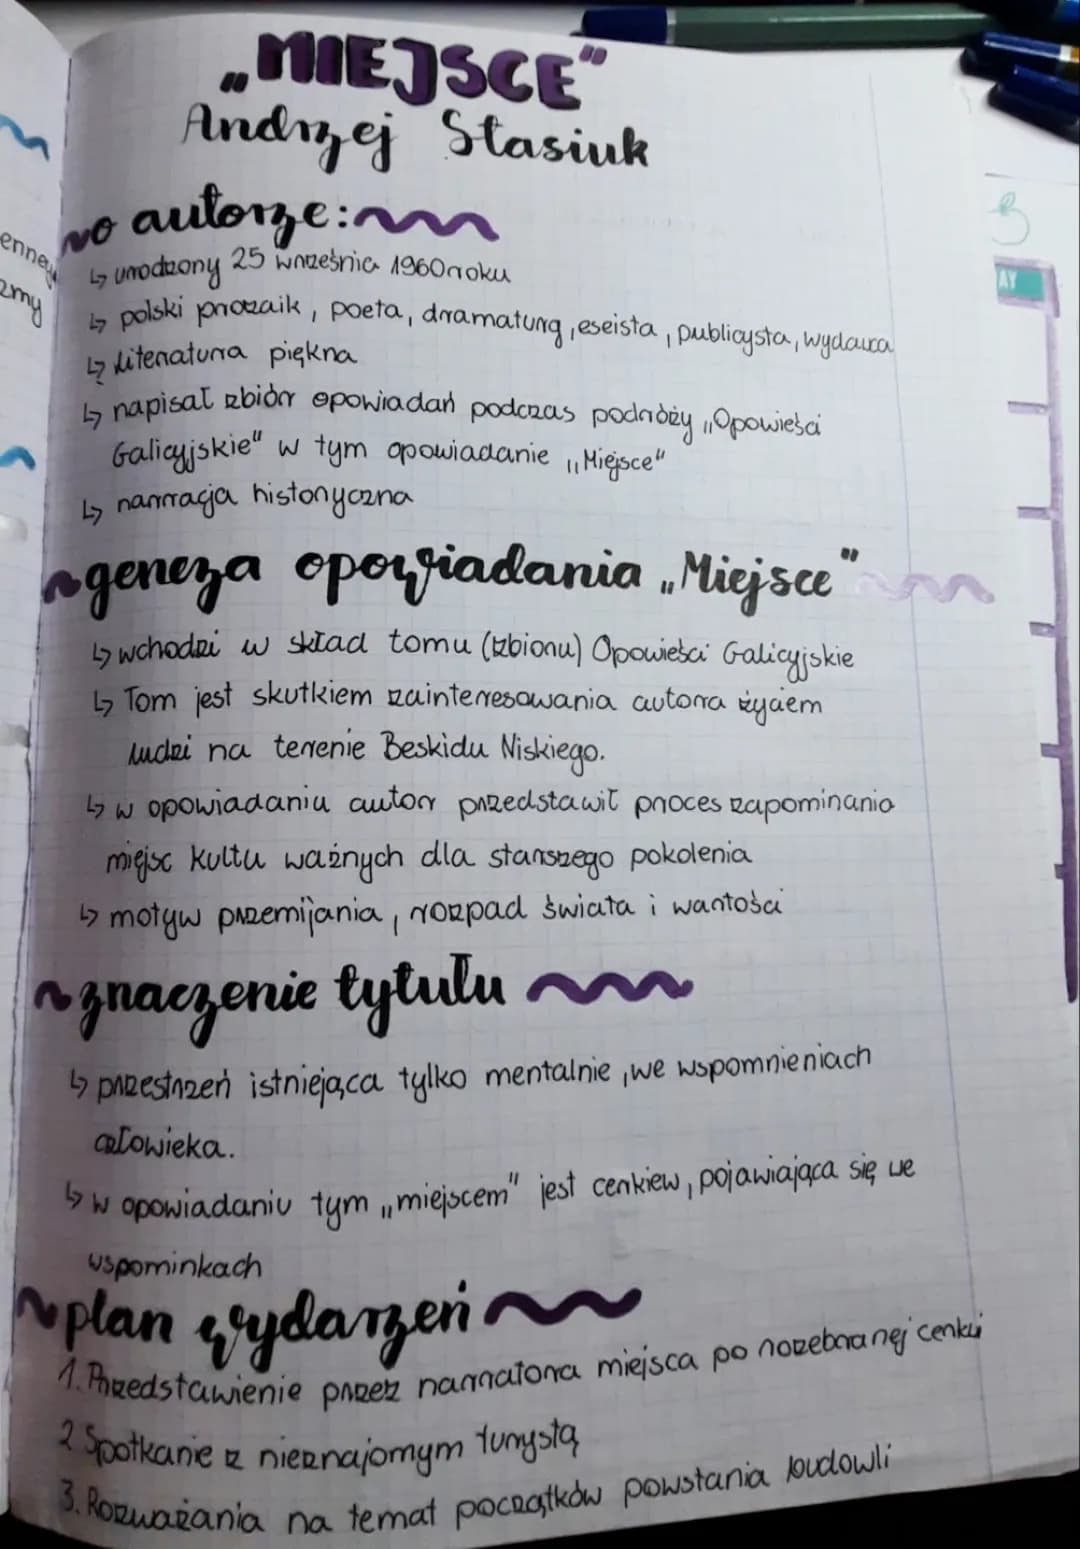 „MIEJSCE"
Andrzej Stasiuk
o autorze:
↳ urodzony 25 września 1960 roku
↳ polski prozaik, poeta, dramaturg, eseista, publicysta, wydawca
↳ literatura piękna
↳ napisał zbiór opowiadań podczas podróży „Opowieści
Galicyjskie" w tym opowiadanie „Miejsce"
↳ narracja historyczna
geneza opowiadania „Miejsce"
↳ wchodzi w skład tomu (zbioru) Opowieści Galicyjskie
↳ Tom jest skutkiem zainteresowania autora życiem
ludzi na terenie Beskidu Niskiego.
↳ w opowiadaniu autor przedstawił proces zapominania
miejsc kultu ważnych dla starszego pokolenia
↳ motyw przemijania, rozpad świata i wartości
znaczenie tytułu
↳ przestrzeń istniejąca tylko mentalnie, we wspomnieniach
człowieka.
↳ w opowiadaniu tym „miejscem" jest cerkiew, pojawiająca się we
wspominkach
plan wydarzeń
1. Przedstawienie przez narratora miejsca po rozebranej cerkwi
2 Spotkanie z nieznajomym turystą
3. Rozważania na temat początków powstania budowli
enney
zmy
AY